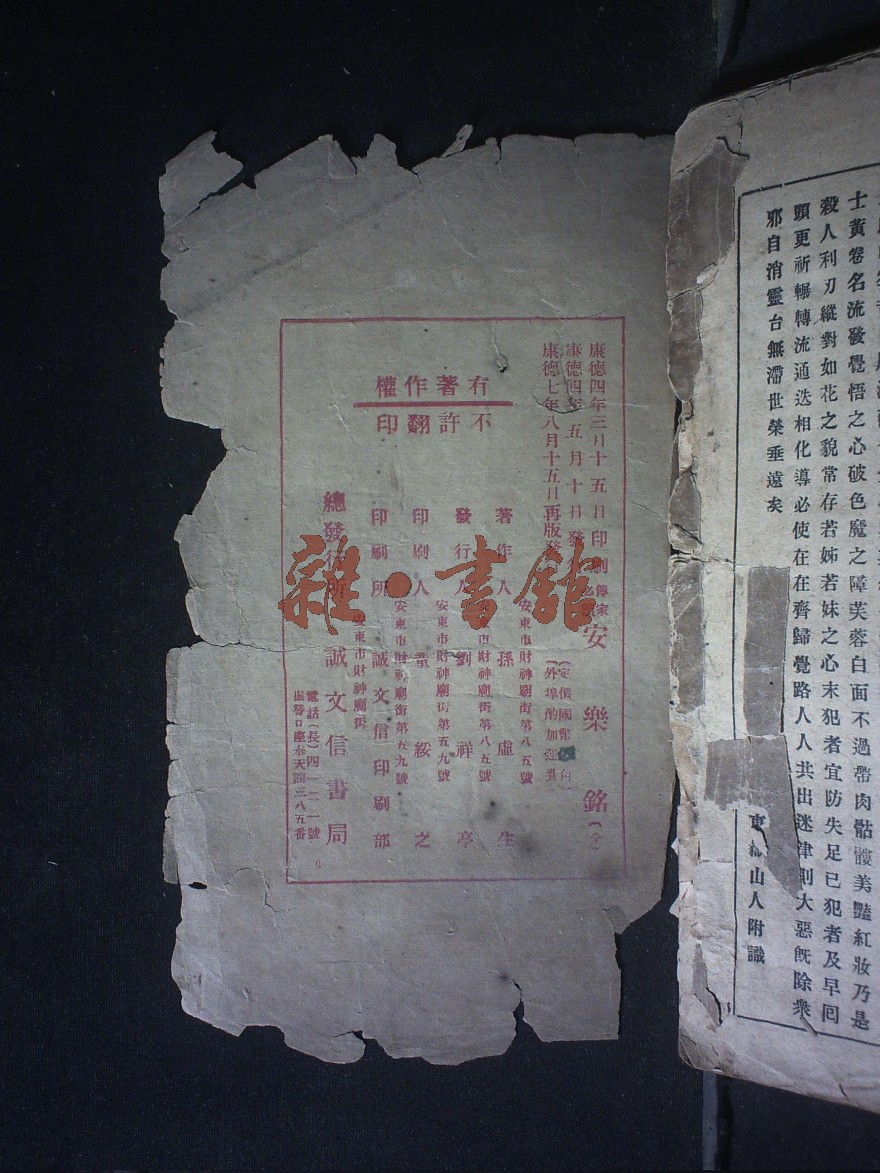 士黃卷名流發覺悟之心破色魔之障芙蓉白面不過帶肉骷髏美豔紅妝乃是
殺人利刃縱對如花之貌常存若姊若妹之心未犯者宜防失足已犯者及早回
頭更祈輾轉流通迭相化導必使在在齊歸覺路人人共出迷津則大惡既除衆
邪自消靈台無滯世榮垂遠矣
東 山人附識
康德四年三月十五日印刷
康德四年五月十日發
康德七年八月十五日再版發
傳家
安樂銘(全)
(定價國幣 角)
(外埠酌加 費)
有著作權
不許翻印
著作人 孫虛生
安東市財神廟街第八五號
發行人 劉祥亭
安東市財神廟街第八五號
印刷人 董綏之
安東市財神廟街第五九號
印刷所 誠文信印刷部
安東市財神廟街第五九號
總發行所 誠文信書局
安東市財神廟街
電話(長)四一二一號
振替口座奉天 三八五番
雜·書館